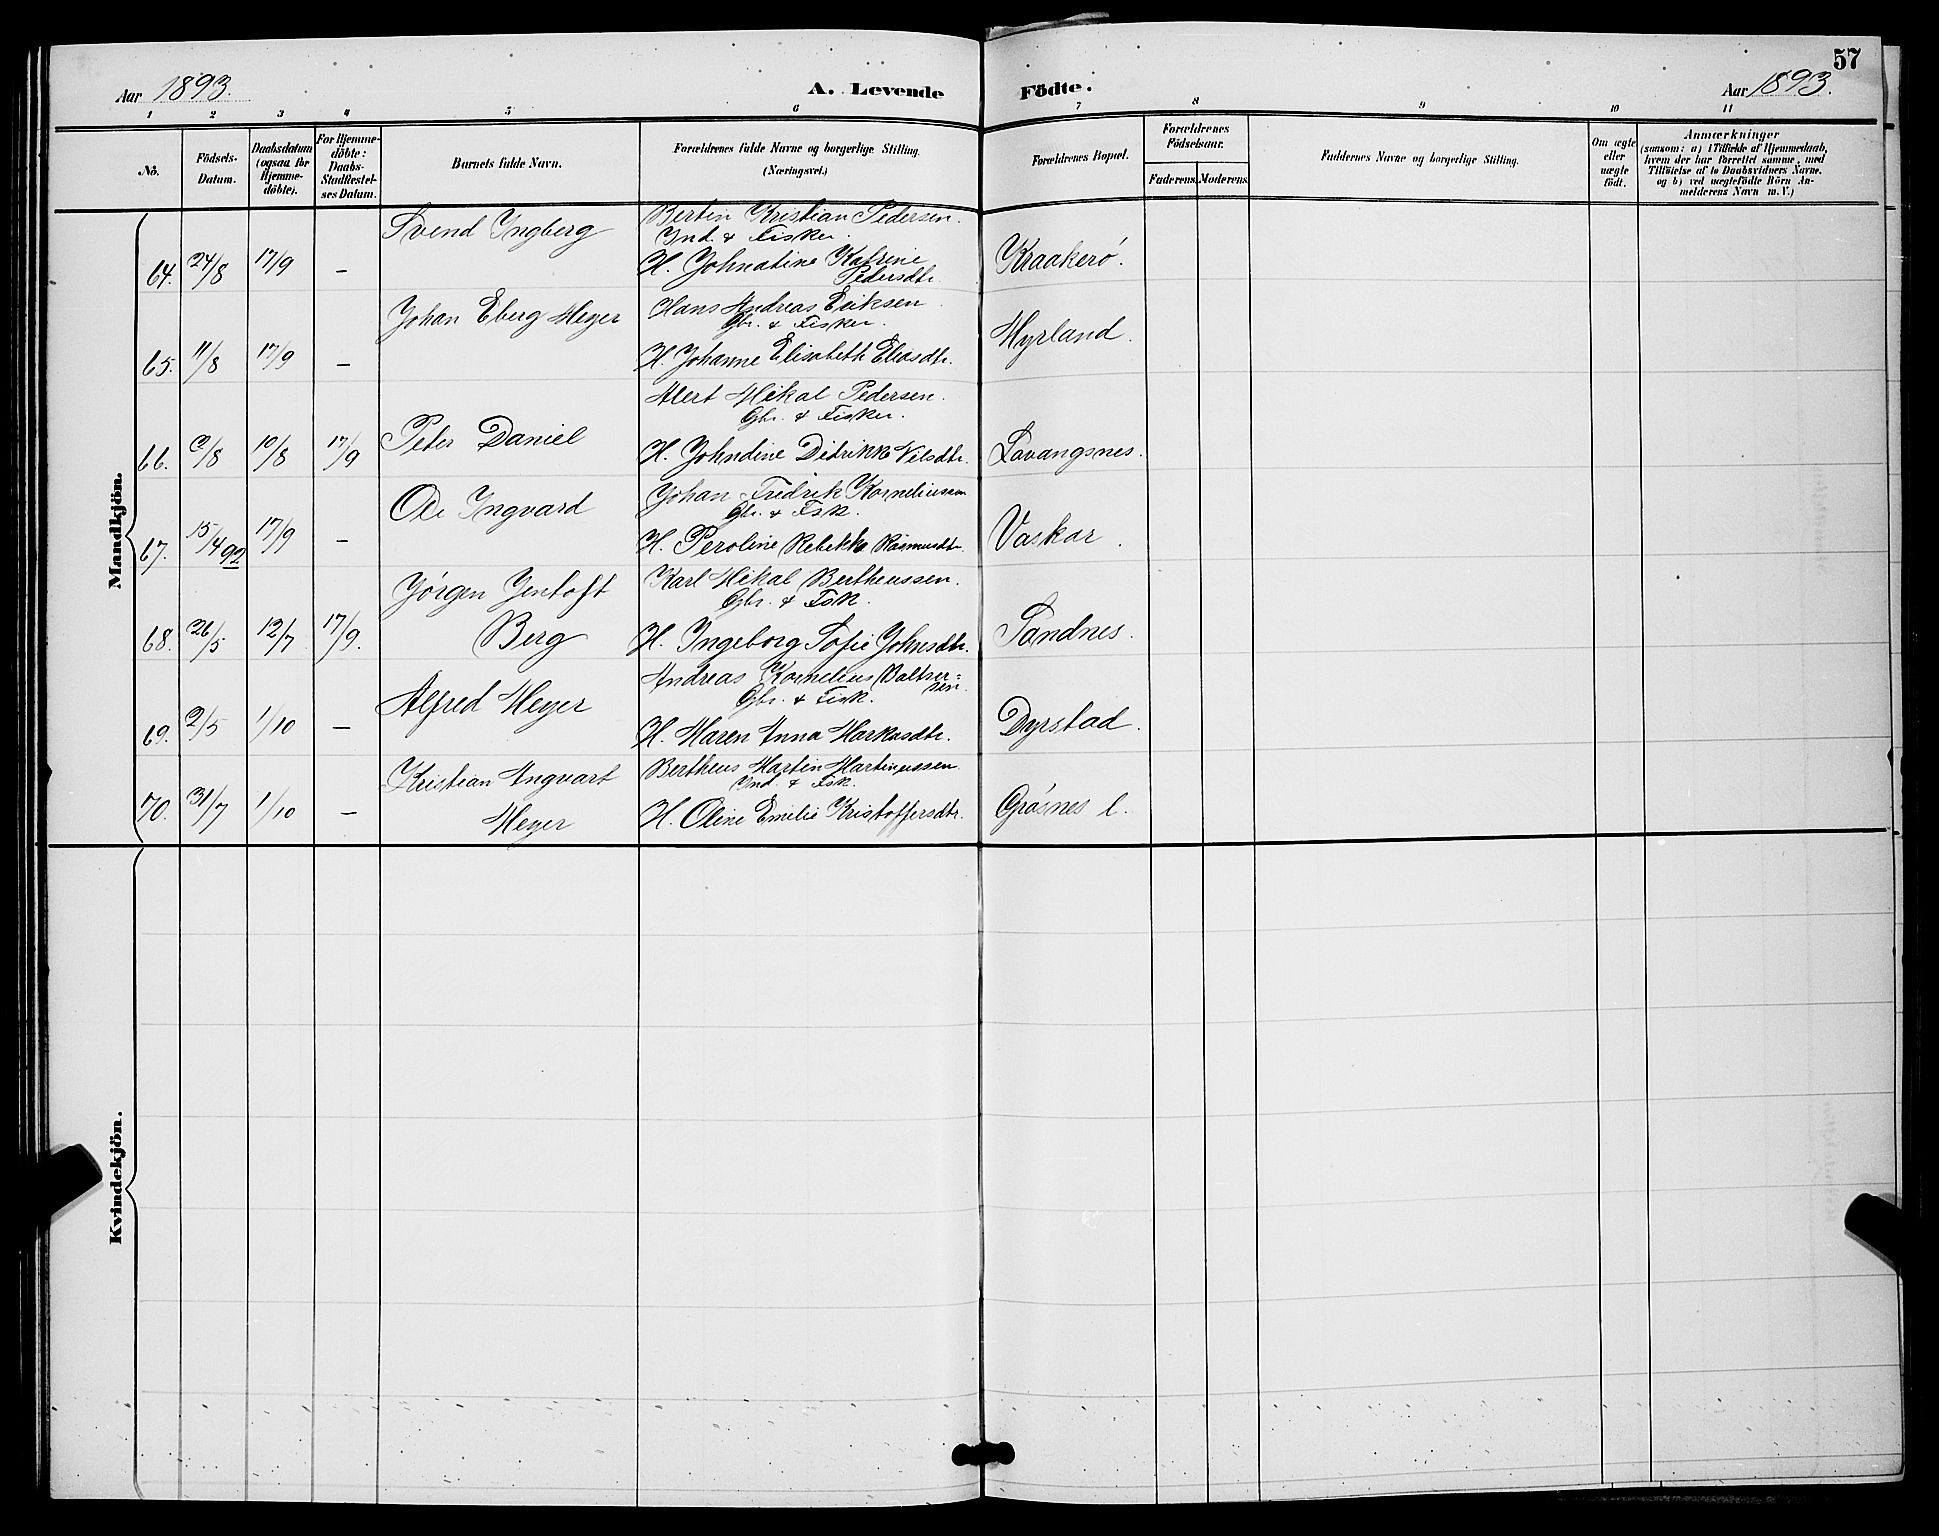 57
Aar 1893.
A. Levende Födte.
Aar 1893.
1 2 3 4 5 6 7 8 9 10 11
No.
Födsels-Datum.
Daabsdatum (ogsaa for Hjemme-döbte).
For Hjemme-döbte: Daabs-Stadfæstel-ses Datum.
Barnets fulde Navn.
Forældrenes fulde Navne og borgerlige Stilling.
(Næringsvei.)
Forældrenes Bopæl.
Forældrenes Födselsaar.
Faderens. Moderens.
Faddernes Navne og borgerlige Stilling.
Om ægte eller uægte født.
Anmærkninger
(saasom: a) i Tilfælde af Hjemmedaab,
hvem der har forrettet samme, med
Tilföielse af to Daabsvidners Navne.
og b) ved uægtefödte Börn An-
melderens Navn m. V.)
Mandkjön.
Svend Ingberg
Bertin Kristian Pedersen.
Ind. & Fisker.
64. 24/8 17/9 —
H. Johnatine Katrine
Pedersdtr.
Kraakerö.
Johan Eberg Meyer
Hans Andreas Eriksen
Gbr. & Fisker.
65. 11/8 17/9 —
H. Johanne Elisabeth Eliasdtr.
Myrland.
Mikal Pedersen.
Gbr. & Fisker.
66. 9/8 10/8 17/9
Peter Daniel
H. Johndine Didrikke Nilsdtr.
Lavangsnes.
Ole Ingvard
Johan Fredrik Korneliussen
Gbr. & Fisk.
67. 15/4 92 17/9 —
H. Peroline Rebekka Rasmusdtr.
Vaskar.
Jörgen Jentoft
Karl Mikal Bertheussen.
Gbr. & Fisk.
68. 26/5 12/7 17/9.
Berg
H. Ingeborg Sofie Johnsdtr.
Sandnes.
Andreas Kornelius Baltser-
sen.
Alfred Meyer
Gbr. & Fisk.
69. 2/5 1/10 —
H. Maren Anna Markusdtr.
Dyrstad.
Kristian Angvart
Bertheus Martin Martinussen.
Ind. & Fsk.
70. 31/7 1/10 —
Meyer
H. Oline Emilie Kristoffersdtr.
Gråsnes l.
Kvindekjön.